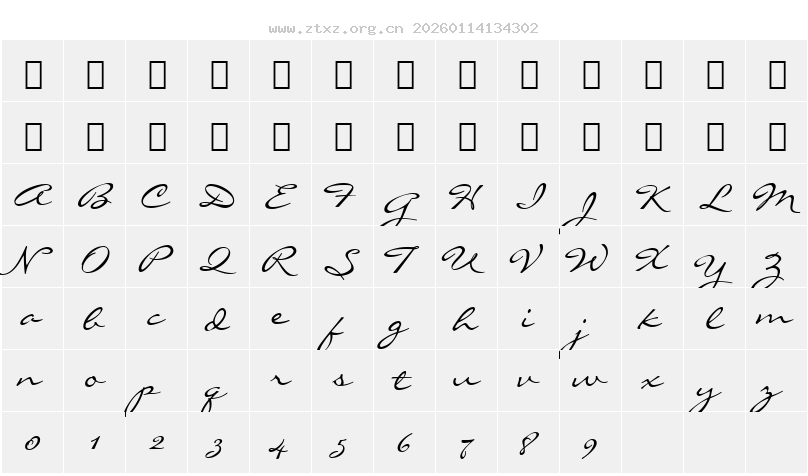 www.ztxz.org.cn 20260114134302
A B C D E F G H I J K L M
N O P Q R S T U V W X Y Z
a b c d e f g h i j k l m
n o p q r s t u v w x y z
0 1 2 3 4 5 6 7 8 9